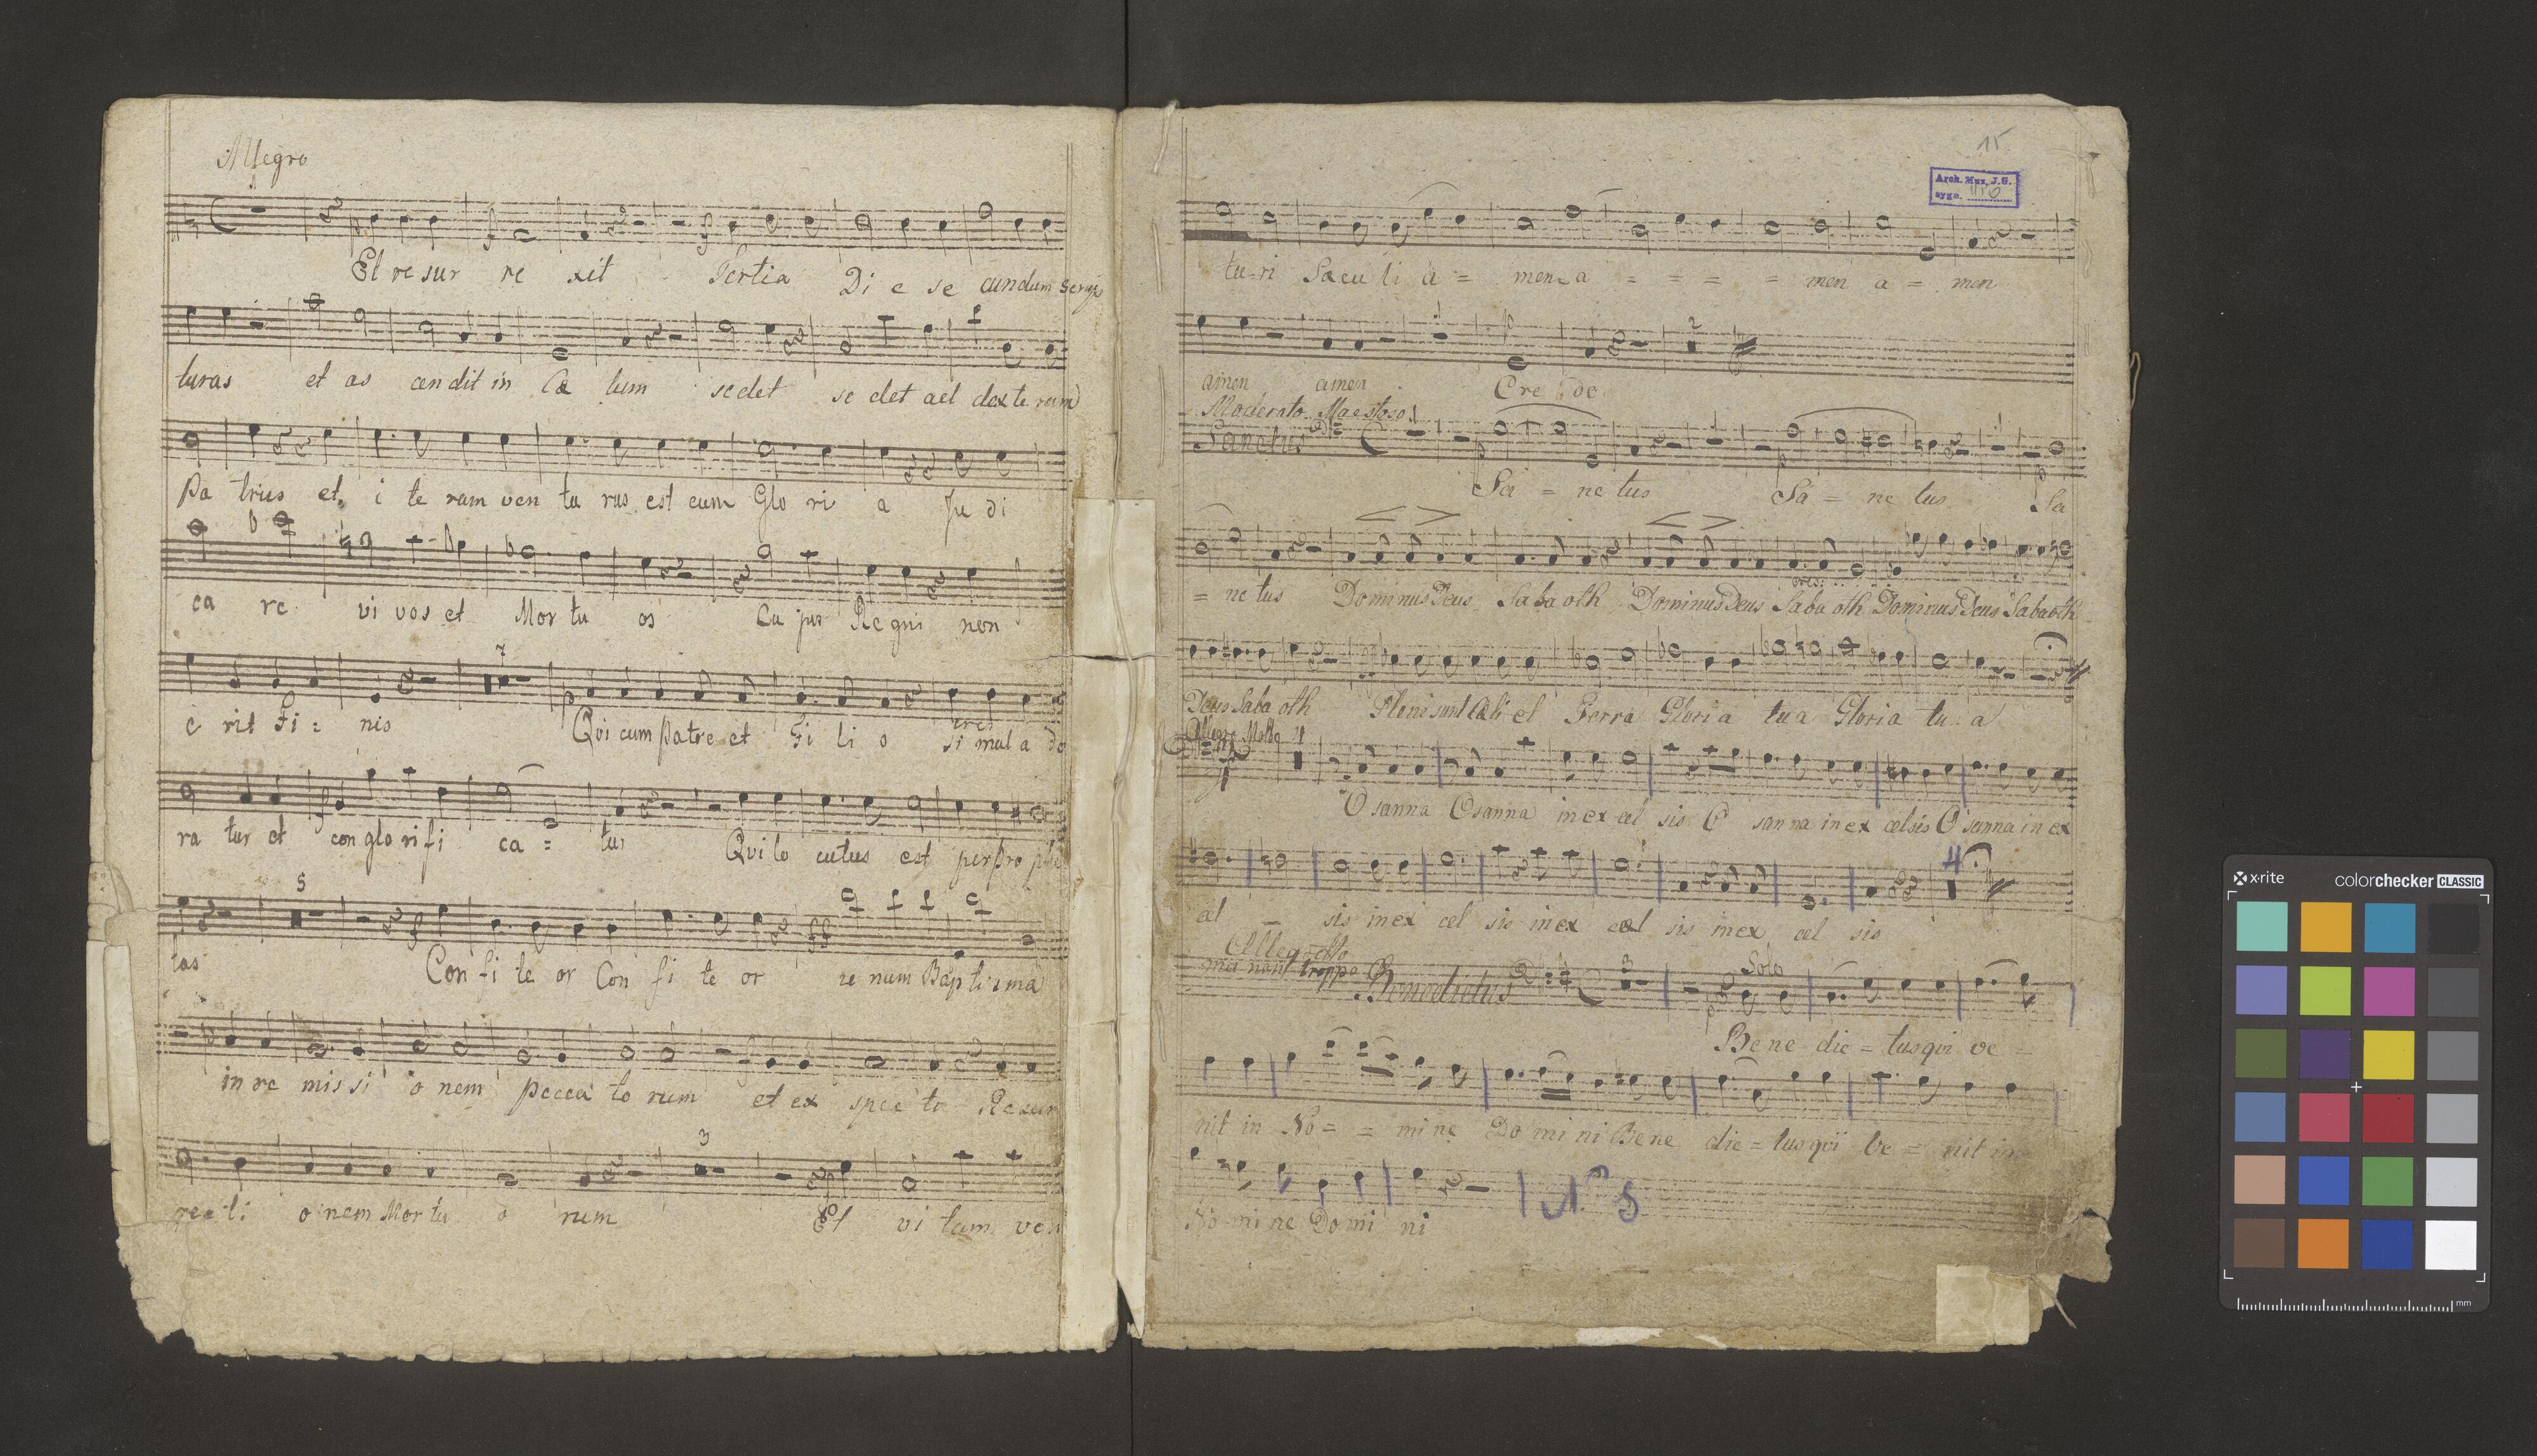 Allegro
1
Et re sur re xit Tertia Di e se cundum Scrip
turas et as cen dit in Cæ lum sedet se det ad dexte ram
Pa trius et i te rum ven tu rus est cum Glo ri a Ju di
ca re vi vos et Mor tu os Cu jus Re gni non
7
e rit Fi = nis Qui cum Patre et Fi li o si mul a do
cres
ra tur et con glo ri fi ca = tur Qui lo cutus est per Pro phe
5
tas Con fi te or Con fi te or u num Bap tis ma
ff
in re mis si o nem pecca to rum et ex spec to Resur
3
rec ti o nem Mor tu o rum Et vi tam ven
15
Arch. Mus. J.G.
sygn.
tu-ri Sæcu li a = men a = = = = men a = men
2
amen amen Cre do
Moderato Maestoso
Sanctus
Sa = nc tus Sa = nc tus Sa
= nc tus Dominus Deus Sabaoth Dominus Deus Saba oth Dominus Deus Sabaoth
cres:
Deus Saba oth Pleni sunt Cæli et Terra Gloria tua Gloria tu a
Allegro Molto
O sanna O sanna in ex cel sis O sanna in ex celsis O sanna in ex
4
cel sis in ex cel sis in ex cel sis in ex cel sis
Allegretto
ma non troppo Benedictus 3 Solo
Be ne dic = tus qui ve =
nit in No = = mi ne Do mi ni Bene dic = tus qui ve = nit in
No mi ne Do mi ni
No 5
x-rite colorchecker CLASSIC
mm